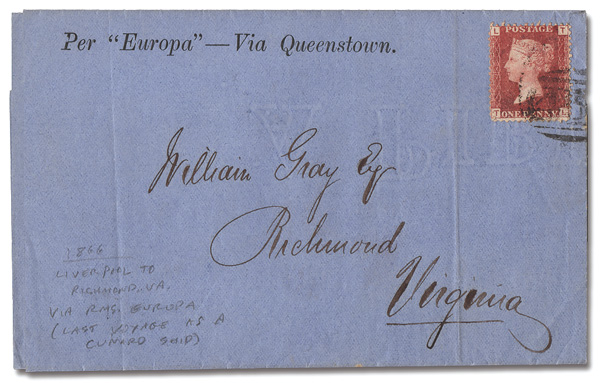 Per "Europa"—Via Queenstown.
L T
POSTAGE
T L
ONE PENNY
William Gray Esq
Richmond
Virginia
1866
LIVERPOOL TO
RICHMOND, VA.
VIA RMS. EUROPA
(LAST VOYAGE AS A
CUNARD SHIP)